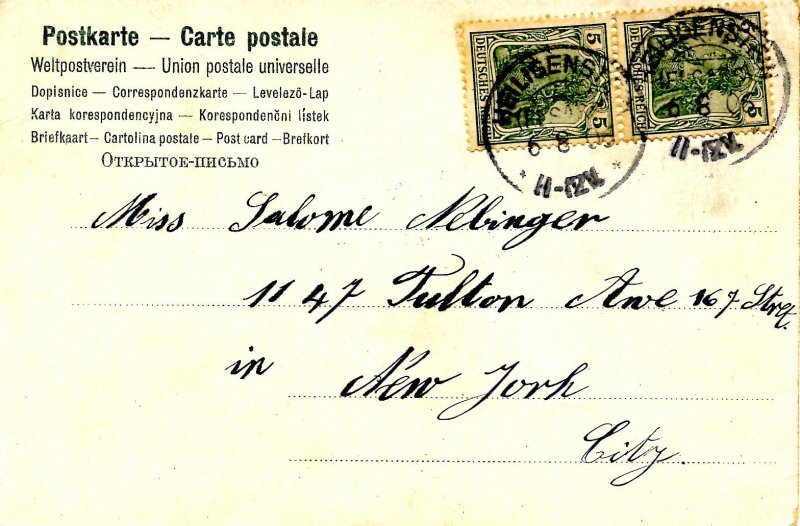 Postkarte — Carte postale
Weltpostverein — Union postale universelle
Dopisnice — Correspondenzkarte — Levelező-Lap
Karta korespondencyjna — Korespondenční lístek
Briefkaart — Cartolina postale — Post card — Brefkort
Открытое-письмо
5 5
DEUTSCHES REICH
5 5
DEUTSCHES REICH
HEILIGENST
6 8
11-12V.
HEILIGENSTEIN
6 8 06
11-12V.
Miss Salome Nebinger
1147 Fulton Awe 167 Strq.
in
New York
City.